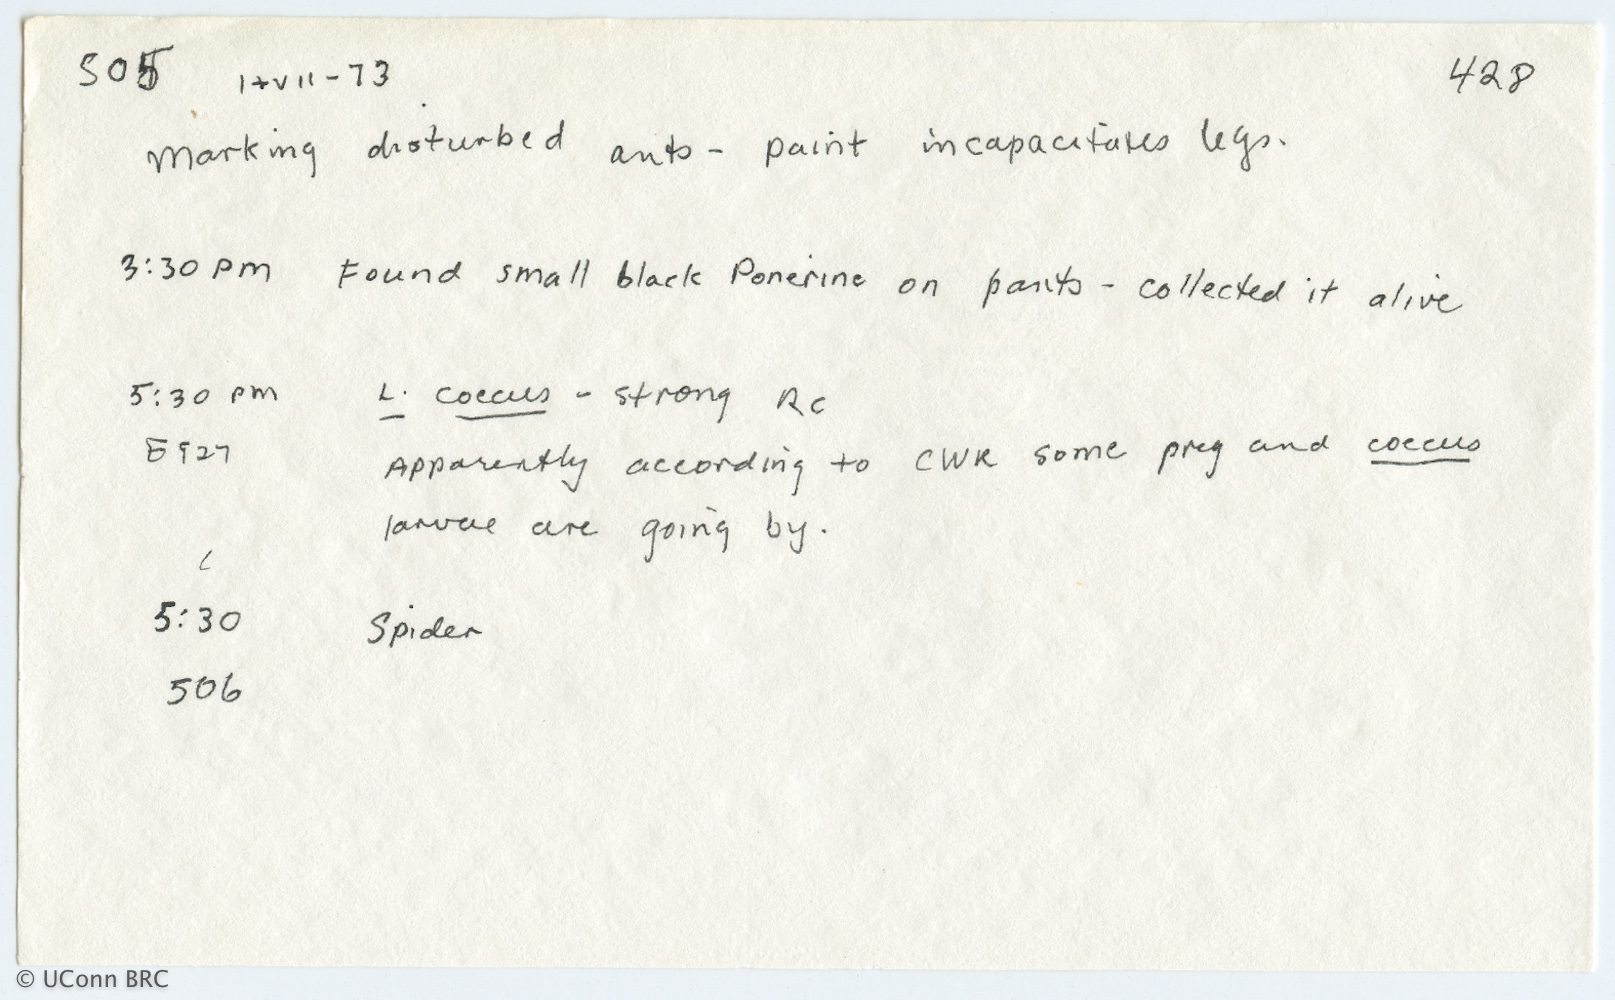 505 1+VII-73 428
Marking disturbed ants - paint incapacitates legs.
3:30 pm Found small black Ponerine on pants - collected it alive
5:30 pm L. coecus - strong Rc
E927 Apparently according to CWR some prey and coecus
larvae are going by.
5:30 Spider
506
© UConn BRC